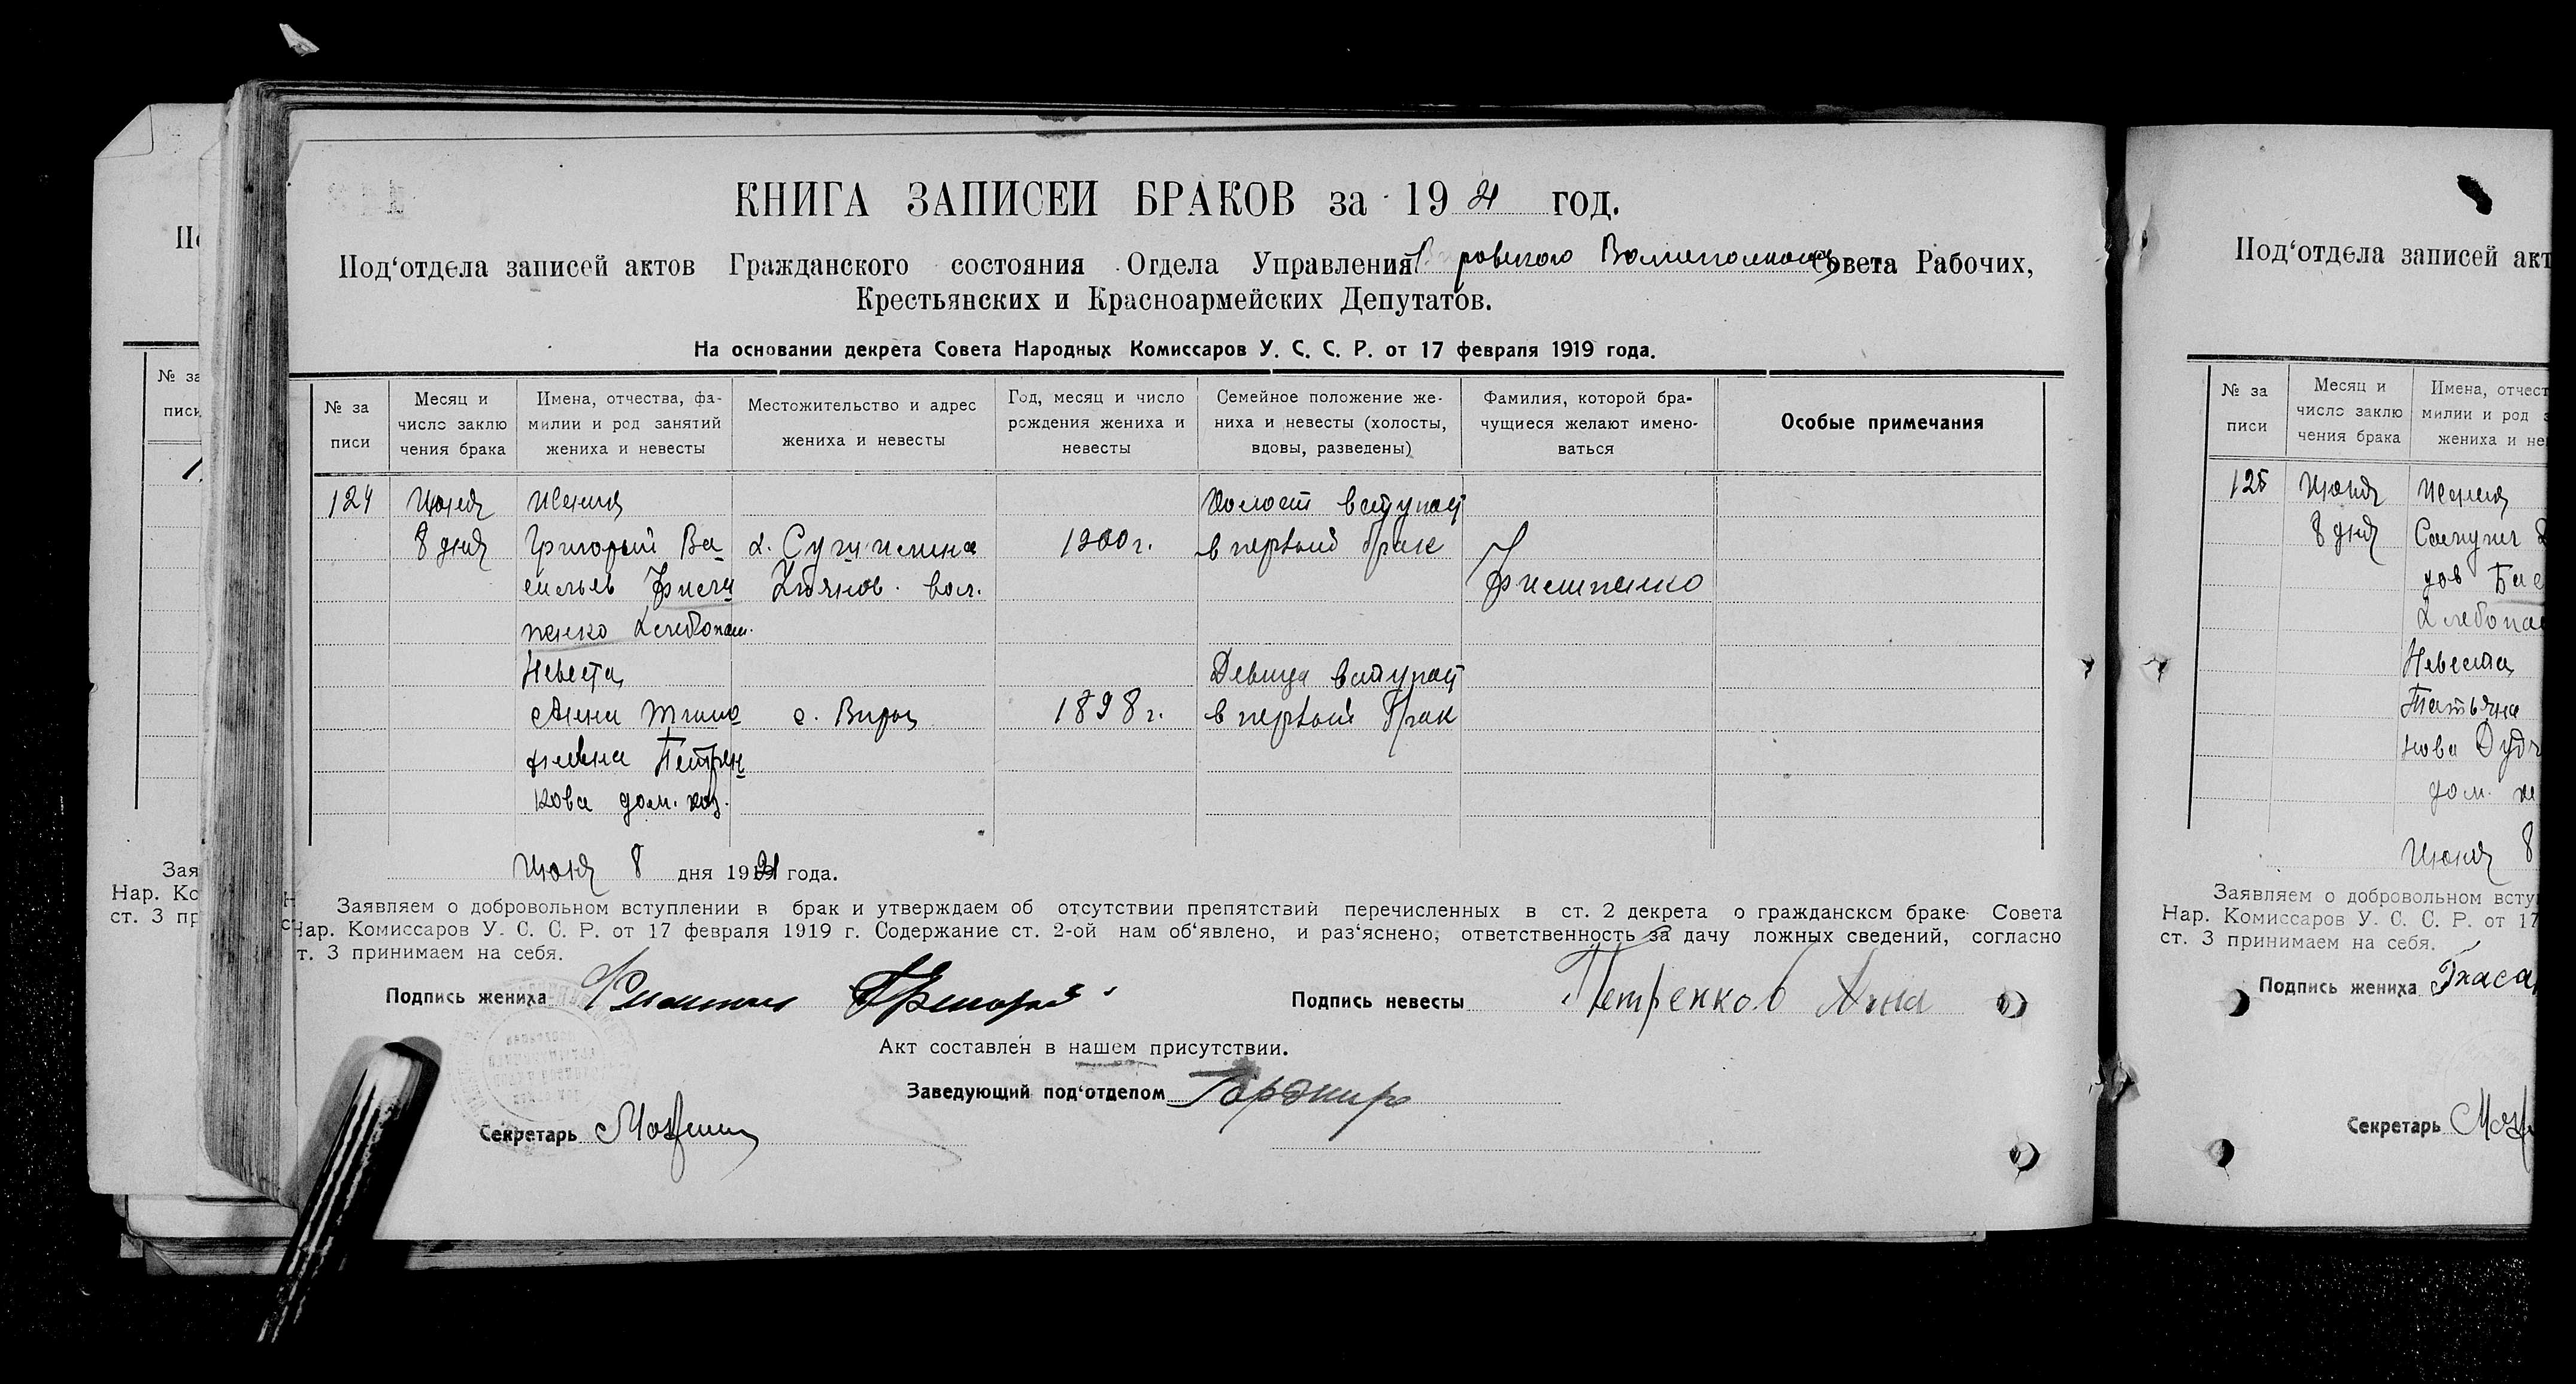 КНИГА ЗАПИСЕЙ БРАКОВ за 1921 год.
Под‘отдела записей актов Гражданского состояния Отдела Управления Совета Рабочих,
Крестьянских и Красноармейских Депутатов.
На основании декрета Совета Народных Комиссаров У. С. С. Р. от 17 февраля 1919 года.
№ за писи
Месяц и число заклю чения брака
Имена, отчества, фа- милии и род занятий жениха и невесты
Местожительство и адрес жениха и невесты
Год, месяц и число рождения жениха и невесты
Семейное положение же- ниха и невесты (холосты, вдовы, разведены)
Фамилия, которой бра- чущиеся желают имено- ваться
Особые примечания
124 Июня Жених Холост вступает
8 дня Григорий Ва 1900 г. в первый брак
сильев вол.
пенко Хлебопаш.
Невета Девица вступает
Анна Тимо с. Виры 1898 г. в первый брак
феевна Петрен
кова дом. хоз.
Июня 8 дня 1921 года.
Заявляем о добровольном вступлении в брак и утверждаем об отсутствии препятствий перечисленных в ст. 2 декрета о гражданском браке Совета
Нар. Комиссаров У. С. С. Р. от 17 февраля 1919 г. Содержание ст. 2-ой нам об‘явлено, и раз‘яснено, ответственность за дачу ложных сведений, согласно
ст. 3 принимаем на себя.
Подпись жениха Григорий Подпись невесты Петренков Анна
Акт составлен в нашем присутствии.
Заведующий под‘отделом
Секретарь
Под‘отдела записей акт
№ за писи
Месяц и число заклю чения брака
Имена, отчест милии и род з жениха и не
125 Июня Жених
8 дня
Хлебопа
Невеста
Татьяна
нова
дом. х
Июня 8
Заявляем о добровольном всту
Нар. Комиссаров У. С. С. Р. от 17
ст. 3 принимаем на себя.
Подпись жениха
Секретарь
№ за
писи
Зая
Нар. Ко
ст. 3 пр